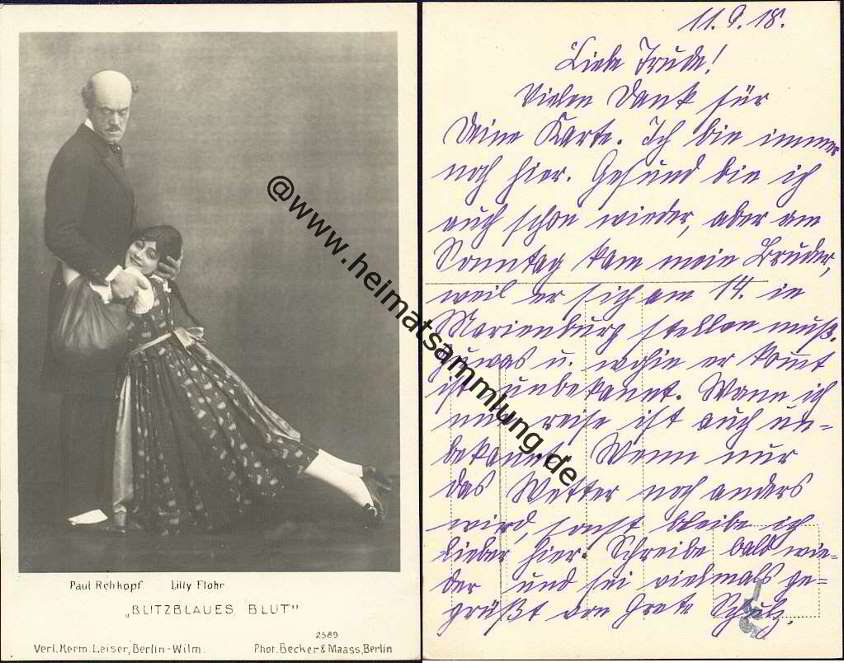 Paul Rehkopf Lilly Flohr
„BLITZBLAUES BLUT"
2589
Verl. Herm. Leiser, Berlin-Wilm. Phot. Becker & Maass, Berlin
@www.heimatsammlung.de
11.9.18.
Liebe Trude!
Vielen Dank für
Deine Karte. Ich bin immer
noch hier. Gesund bin ich
auch schon wieder, aber am
Sonntag kam mein Bruder,
weil er sich am 14. in
Marienburg stellen muß.
u. wohin er kommt
ist unbekannt. Wann ich
nun reise ist auch un-
bekannt. Wenn nur
das Wetter noch anders
wird, sonst bleibe ich
lieber hier. Schreibe bald wie-
der und sei vielmals ge-
grüßt von Grete Schulz.